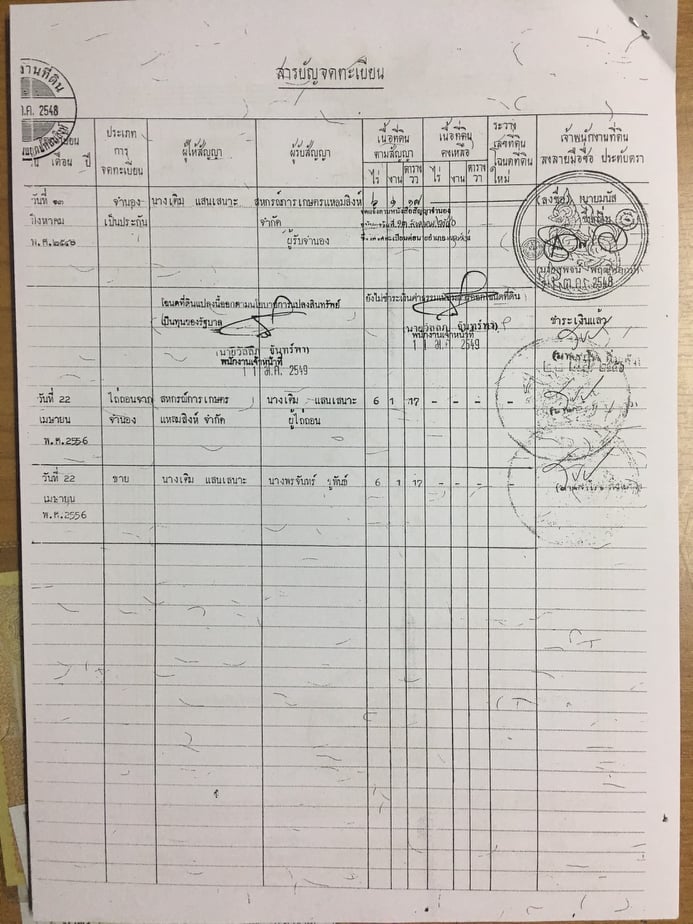 สารบัญจดทะเบียน
งานที่ดิน
ค. 2548
เดือน ปี
ประเภท
การ
จดทะเบียน
ผู้ให้สัญญา
ผู้รับสัญญา
เนื้อที่ดิน
ตามสัญญา
ไร่ งาน ตาราง
วา
เนื้อที่ดิน
คงเหลือ
ไร่ งาน ตาราง
วา
ระวาง
เลขที่ดิน
โฉนดที่ดิน
ใหม่
เจ้าพนักงานที่ดิน
ลงลายมือชื่อ ประทับตรา
วันที่ ๑๓ จำนอง นางเติม แสนเสนาะ สหกรณ์การเกษตรแหลมสิงห์ ๖ ๑ ๑๗ (ลงชื่อ)
สิงหาคม เป็นประกัน จำกัด
พ.ศ.๒๕๔๖ ผู้รับจำนอง
2548
โฉนดที่ดินแปลงนี้ออกตามนโยบายการแปลงสินทรัพย์
เป็นทุนของรัฐบาล
พนักงานเจ้าหน้าที่
1 1 ม.ค. 2549
ยังไม่ชำระเงินค่าธรรมเนียม โฉนดที่ดิน
พนักงานเจ้าหน้าที่
2549
ชำระเงินแล้ว
วันที่ 22 ไถ่ถอนจาก สหกรณ์การเกษตร นางเติม แสนเสนาะ 6 1 17 - - - -
เมษายน จำนอง แหลมสิงห์ จำกัด ผู้ไถ่ถอน
พ.ศ.2556
วันที่ 22 ขาย นางเติม แสนเสนาะ นางพรจันทร์ ชูพันธ์ 6 1 17 - - - -
เมษายน
พ.ศ.2556